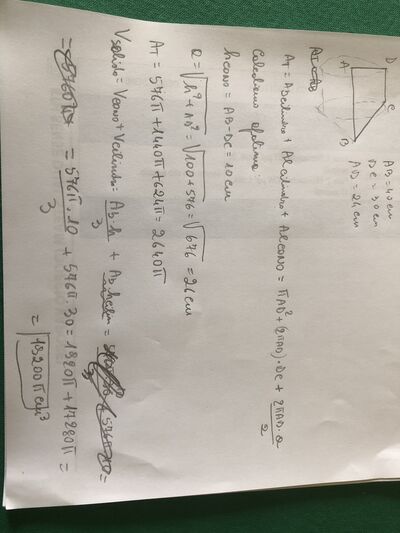 D
C
A
B
AB=40cm
DC=30cm
AD=24cm
AT = Abcilindro + Alcilindro + Alcono = πAD² + (2πAD)·DC + 2πAD·a/2
Calcoliamo apotema:
hcono = AB-DC = 10cm
a = √h²+AD² = √100+576 = √676 = 26cm
AT = 576π + 1440π + 624π = 2640π
Vsolido = Vcono + Vcilindro = Ab·h/3 + Ab =
= 576π·10/3 + 576π·30 = 1920π + 17280π =
= 19200πcm³